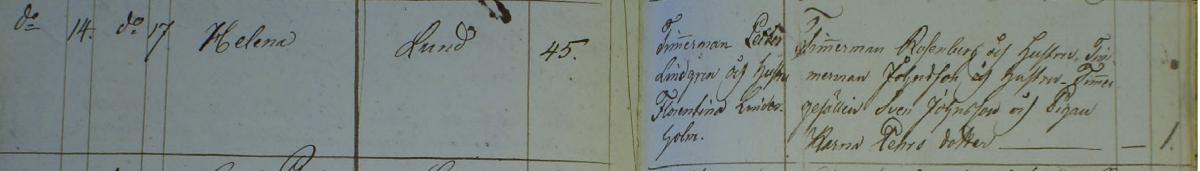 do 14. do 17 Helena Lund 45.
Timmerman Petter
Lindgren och hustru
Florentina Linder-
holm.
Timmerman Rosenberg och hustru, Tim-
merman Johnsson och hustru, Timmer
gesällen Sven Johnsson och Pigan
Karna Pehrs dotter — — 1.